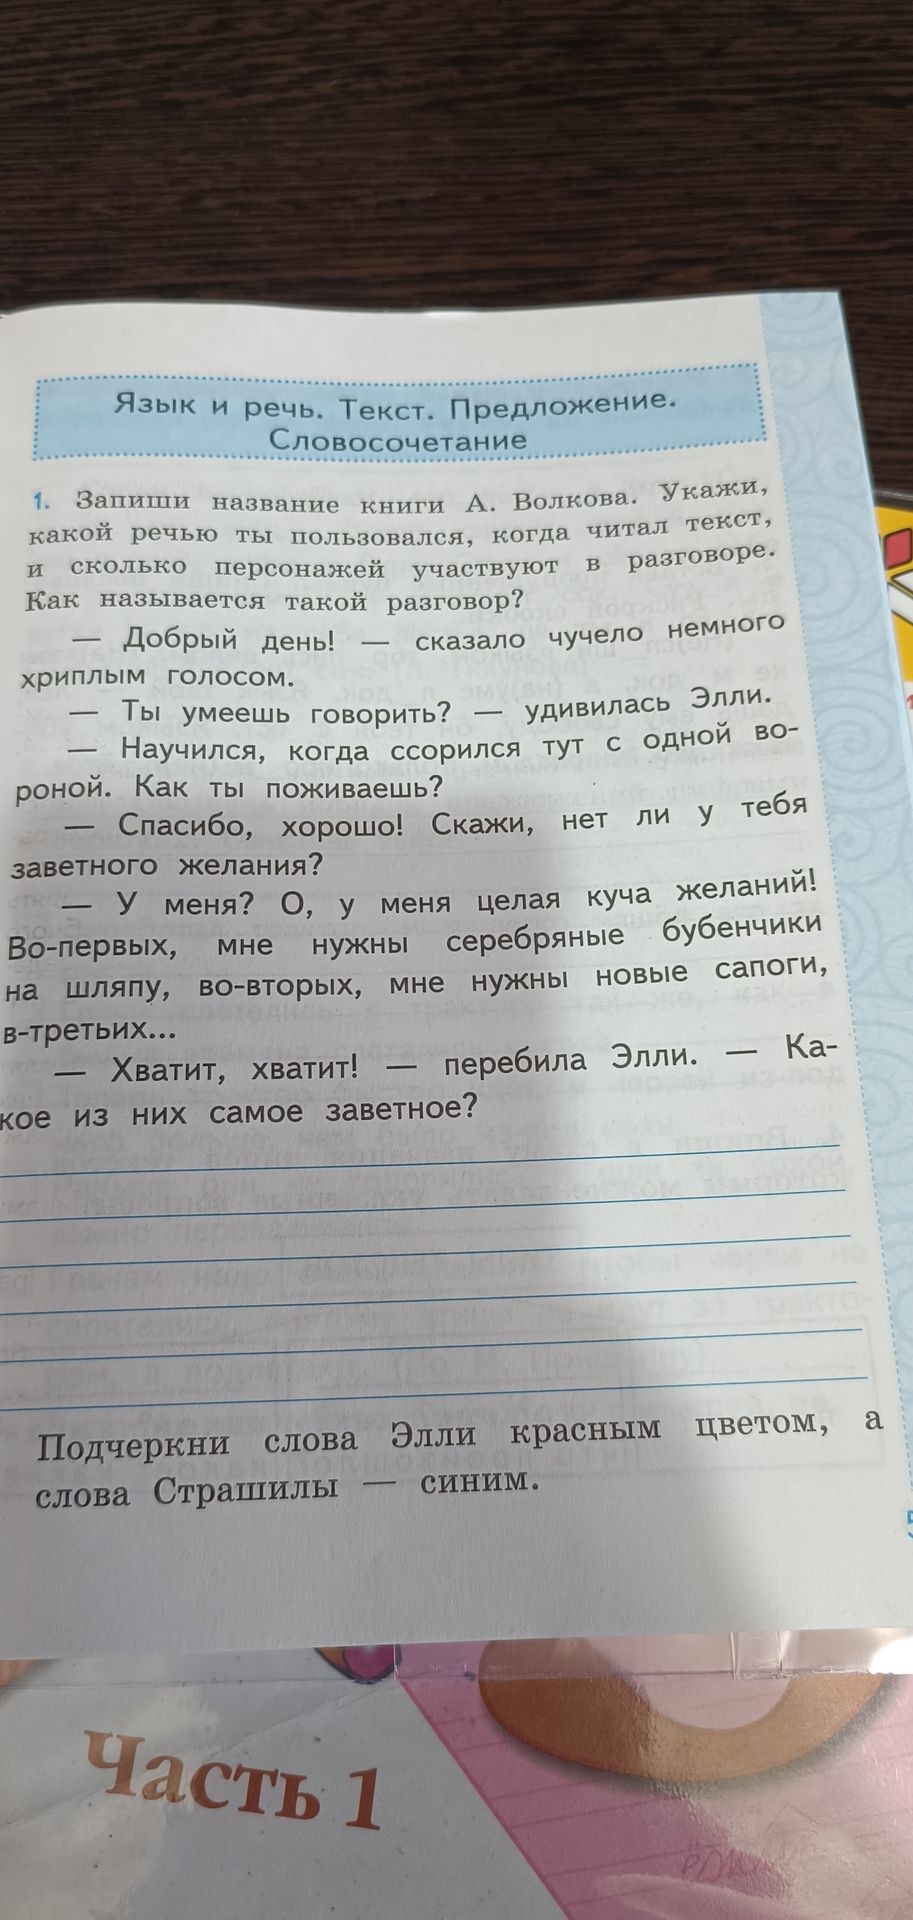 Язык и речь. Текст. Предложение.
Словосочетание
1. Запиши название книги А. Волкова. Укажи,
какой речью ты пользовался, когда читал текст,
и сколько персонажей участвуют в разговоре.
Как называется такой разговор?
— Добрый день! — сказало чучело немного
хриплым голосом.
— Ты умеешь говорить? — удивилась Элли.
— Научился, когда ссорился тут с одной во-
роной. Как ты поживаешь?
— Спасибо, хорошо! Скажи, нет ли у тебя
заветного желания?
— У меня? О, у меня целая куча желаний!
Во-первых, мне нужны серебряные бубенчики
на шляпу, во-вторых, мне нужны новые сапоги,
в-третьих...
— Хватит, хватит! — перебила Элли. — Ка-
кое из них самое заветное?
Подчеркни слова Элли красным цветом, а
слова Страшилы — синим.
Часть 1